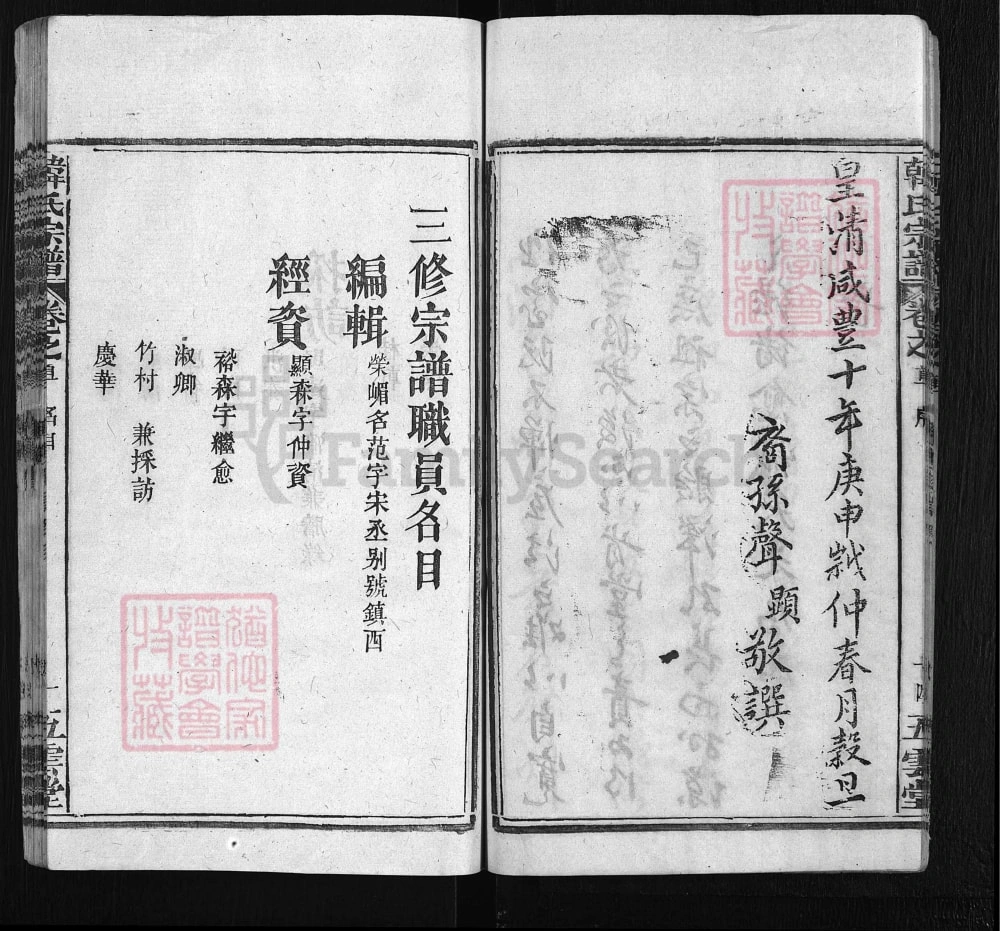 皇清咸豐十年庚申歲仲春月穀旦
裔孫聲顯敬譔
三修宗譜職員名目
編輯 榮嵋名范字宋丞别號鎮西
經資 顯森字仲資
裕森字繼愈
淑卿
竹村 兼採訪
慶華
韓氏宗譜
卷之首
五雲堂
韓氏宗譜
卷之首
名目
一
五雲堂
猶他家譜學會收藏
FamilySearch